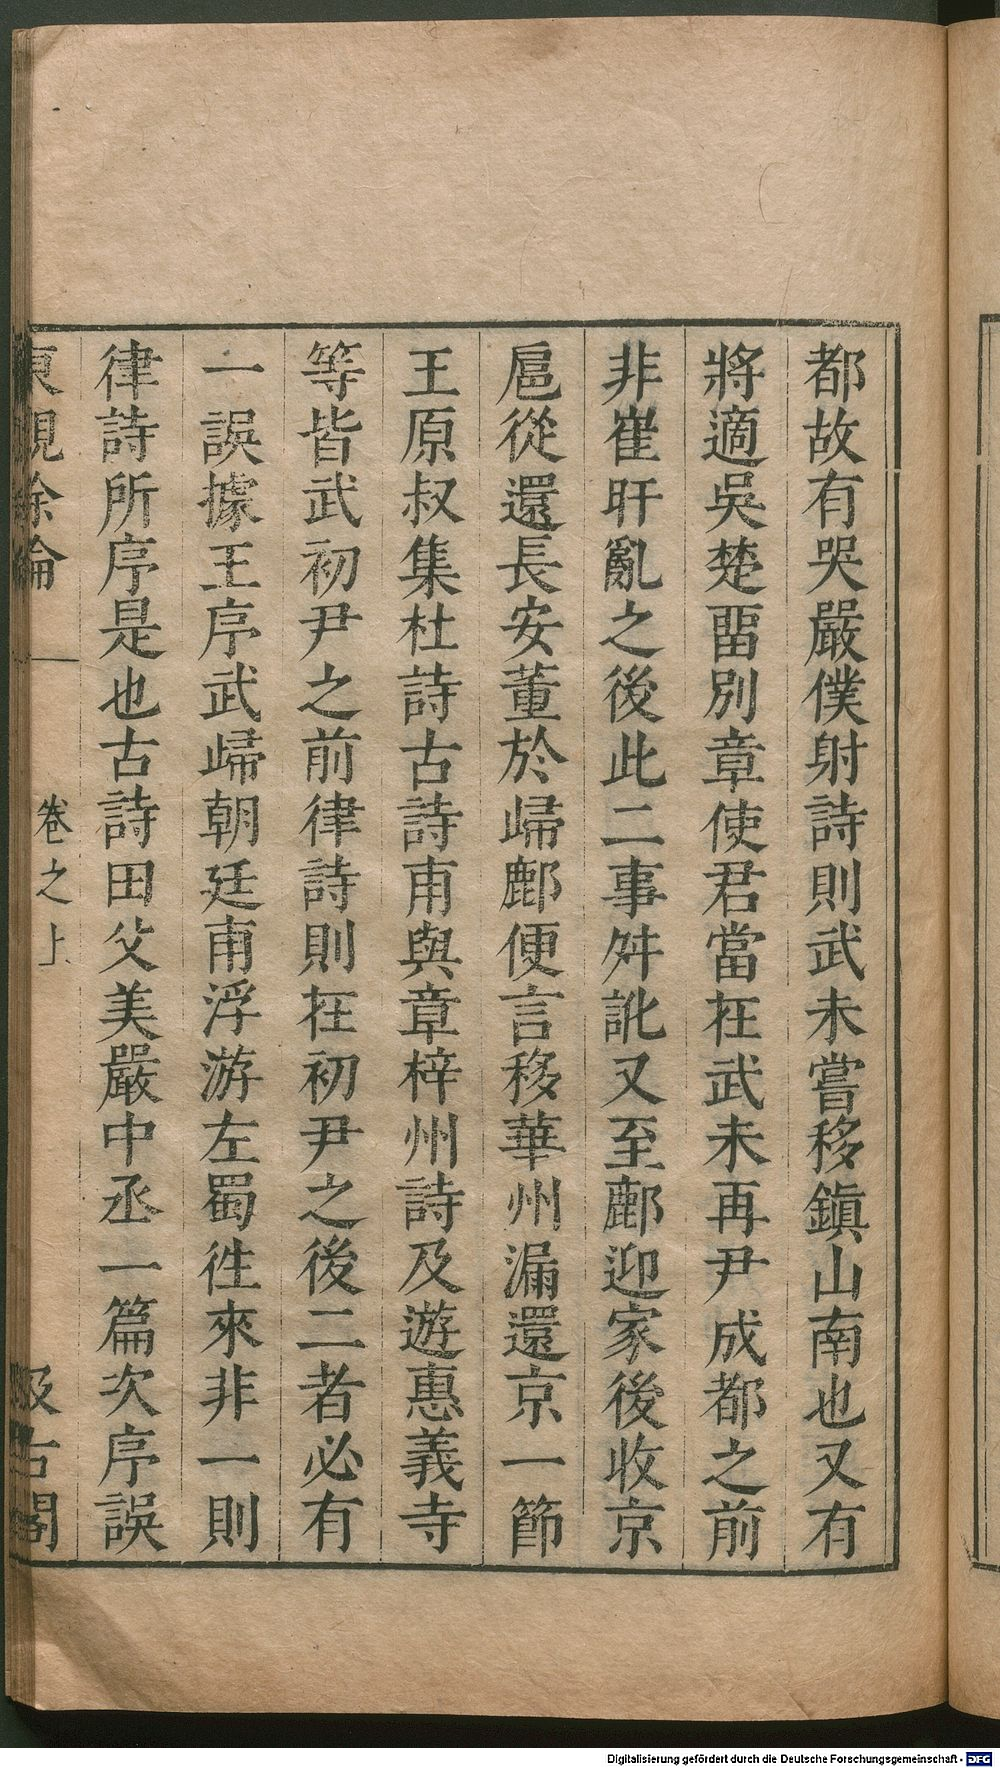 都故有哭嚴僕射詩則武未嘗移鎮山南也又有
將適吳楚留別章使君當在武未再尹成都之前
非崔旰亂之後此二事舛訛又至鄜迎家後收京
扈從還長安董於歸鄜便言移華州漏還京一節
王原叔集杜詩古詩甫與章梓州詩及遊惠義寺
等皆武初尹之前律詩則在初尹之後二者必有
一誤據王序武歸朝廷甫浮游左蜀徃來非一則
律詩所序是也古詩田父美嚴中丞一篇次序誤
東觀餘論 卷之上 汲古閣
Digitalisierung gefördert durch die Deutsche Forschungsgemeinschaft - DFG